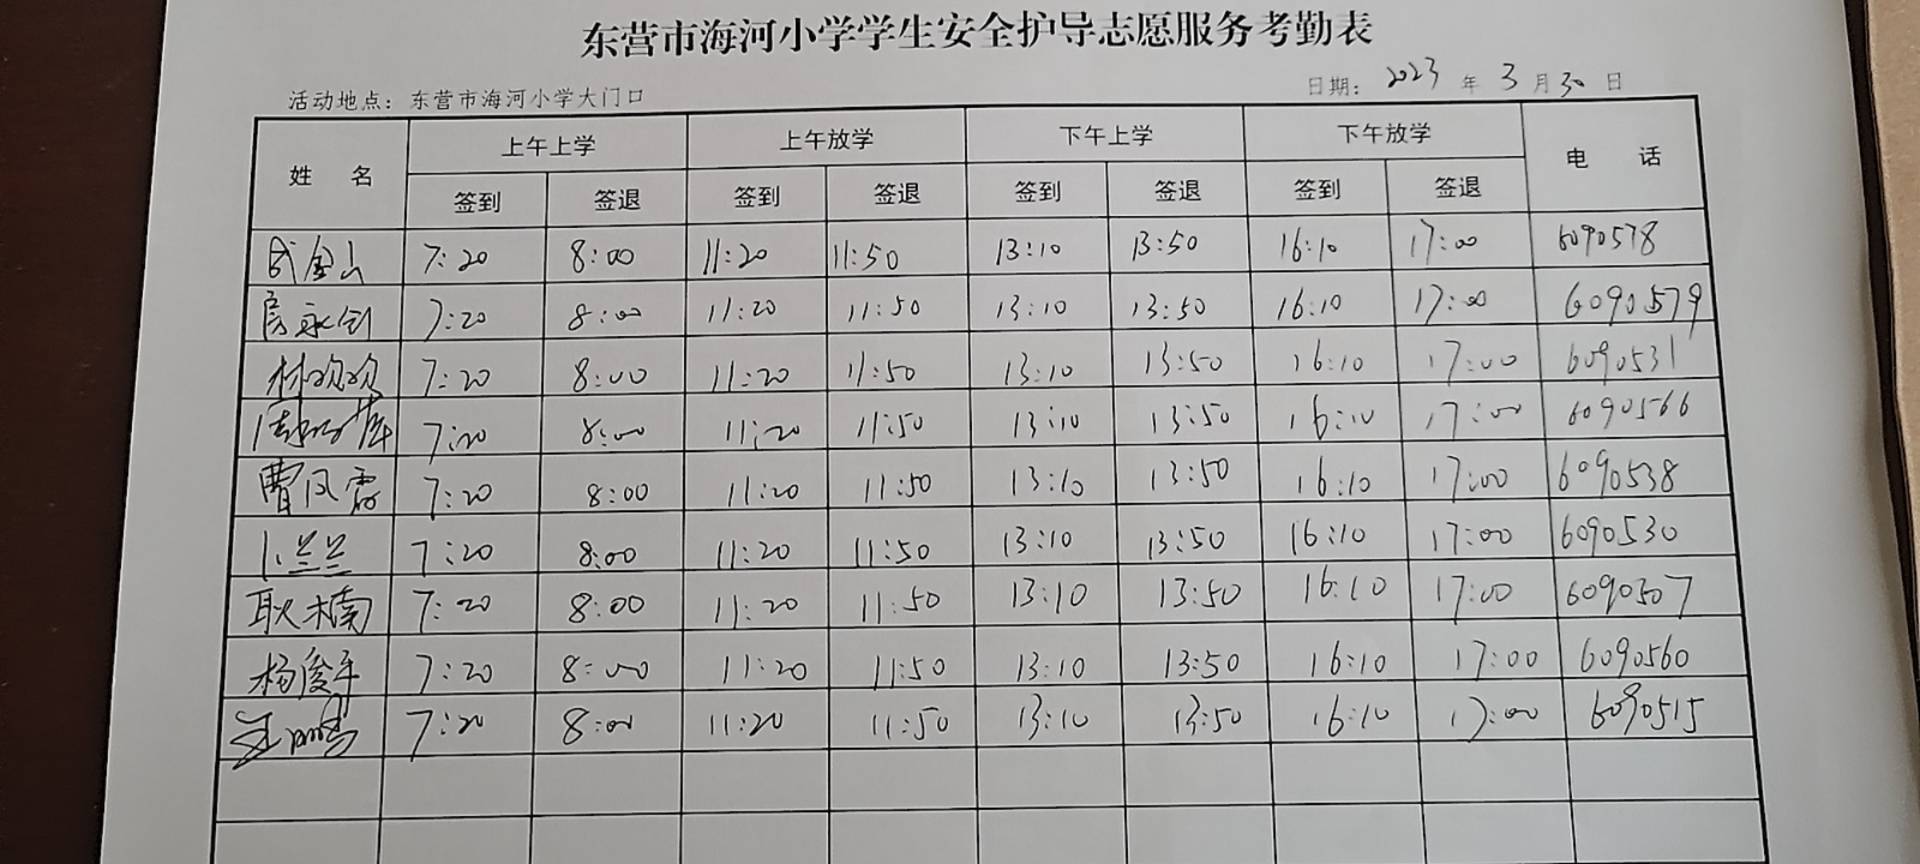 东营市海河小学学生安全护导志愿服务考勤表
活动地点：东营市海河小学大门口 日期： 2023 年 3 月 30 日
姓 名 上午上学 上午放学 下午上学 下午放学 电 话
签到 签退 签到 签退 签到 签退 签到 签退
武金山 7:20 8:00 11:20 11:50 13:10 13:50 16:10 17:00 6090578
房永剑 7:20 8:00 11:20 11:50 13:10 13:50 16:10 17:00 6090579
林欢欢 7:20 8:00 11:20 11:50 13:10 13:50 16:10 17:00 6090531
7:20 8:00 11:20 11:50 13:10 13:50 16:10 17:00 6090566
曹凤霞 7:20 8:00 11:20 11:50 13:10 13:50 16:10 17:00 6090538
卜兰兰 7:20 8:00 11:20 11:50 13:10 13:50 16:10 17:00 6090530
耿楠 7:20 8:00 11:20 11:50 13:10 13:50 16:10 17:00 6090507
杨俊平 7:20 8:00 11:20 11:50 13:10 13:50 16:10 17:00 6090560
7:20 8:00 11:20 11:50 13:10 13:50 16:10 17:00 6090515